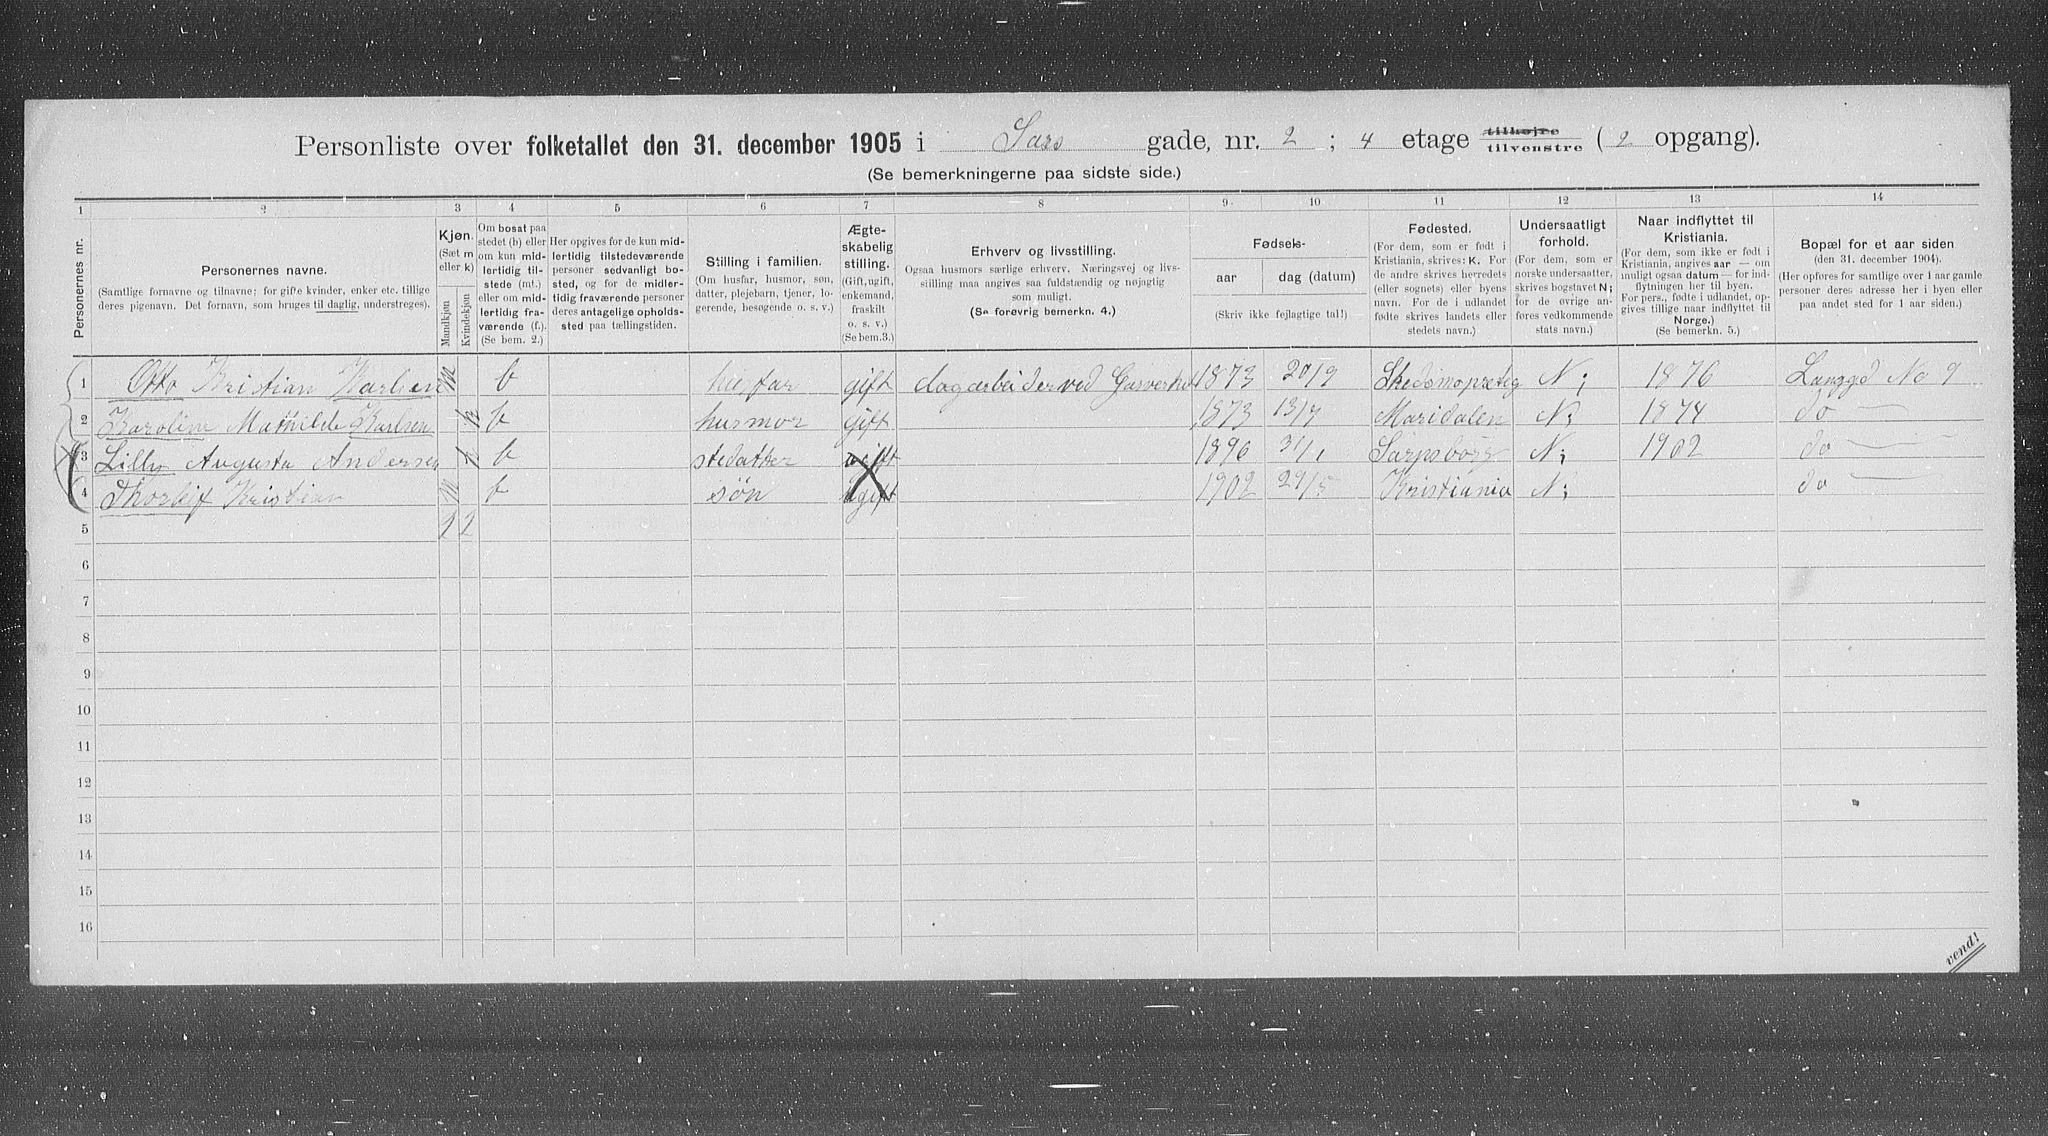 Personliste over folketallet den 31. december 1905 i Sars gade, nr. 2 ; 4 etage tilhøjre tilvenstre ( 2 opgang).
(Se bemerkningerne paa sidste side.)
1 2 3 4 5 6 7 8 9 10 11 12 13 14
Personernes nr.
Personernes navne.
(Samtlige fornavne og tilnavne; for gifte kvinder, enker etc. tillige
deres pigenavn. Det fornavn, som bruges til daglig, understreges).
Kjøn.
(Sæt m
eller k)
Mandkjøn
Kvindekjøn
Om bosat paa
stedet (b) eller
om kun mid-
lertidig til-
stede (mt.)
eller om mid-
lertidig fra-
værende (f.).
(Se bem. 2.)
Her opgives for de kun mid-
lertidig tilstedeværende
personer sedvanligt bo-
sted, og for de midler-
tidig fraværende personer
deres antagelige opholds-
sted paa tællingstiden.
Stilling i familien.
(Om husfar, husmor, søn,
datter, plejebarn, tjener, lo-
gerende, besøgende o. s. v.)
Ægte-
skabelig
stilling.
(Gift, ugift,
enkemand,
fraskilt
o. s. v.)
(Se bem.3.)
Erhverv og livsstilling.
Ogsaa husmors særlige erhverv. Næringsvej og livs-
stilling maa angives saa fuldstændig og nøjagtig
som muligt.
(Se forøvrig bemerkn. 4.)
Fødsels-
aar
dag (datum)
(Skriv ikke fejlagtige tal!)
Fødested.
(For dem, som er født i
Kristiania, skrives: K. For
de andre skrives herredets
(eller sognets) eller byens
navn. For de i udlandet
fødte skrives landets eller
stedets navn.)
Undersaatligt
forhold.
(For dem, som er
norske undersaatter,
skrives bogstavet N;
for de øvrige an-
føres vedkommende
stats navn.)
Naar indflyttet til
Kristiania.
(For dem, som ikke er født i
Kristiania, angives aar — om
muligt ogsaa datum — for ind-
flytningen her til byen.
For pers., fødte i udlandet, op-
gives tillige naar indflyttet til
Norge.)
(Se bemerkn. 5.)
Bopæl for et aar siden
(den 31. december 1904).
(Her opføres for samtlige over 1 aar gamle
personer deres adresse her i byen eller
paa andet sted for 1 aar siden.)
1 Otto Kristian Karlsen m b husfar gift dagarbeider ved Gasverket 1873 20/9 Skedsmopretig N; 1876 Langgd No 9
2 Karoline Mathilde Karlsen k b husmor gift 1873 13/7 Maridalen N; 1874 do —
3 Lilly Augusta Andersen k b stedatter ugift 1896 31/1 Sarpsborg N; 1902 do —
4 Thorleif Kristian m b søn ugift 1902 29/5 Kristiania N; do —
5
6
7
8
9
10
11
12
13
14
15
16
vend!